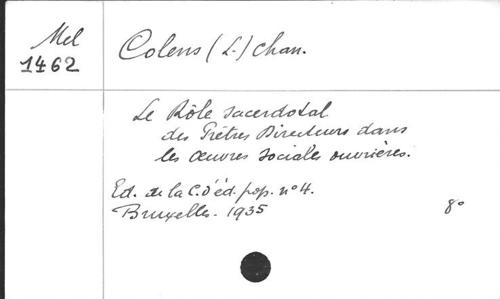 Mel
1462
Colens (L.) chan.
Le Rôle sacerdotal
des Prêtres Directeurs dans
les Œuvres sociales ouvrières.
Ed. de la C. d'éd. pop. n° 4.
Bruxelles. 1935
8°